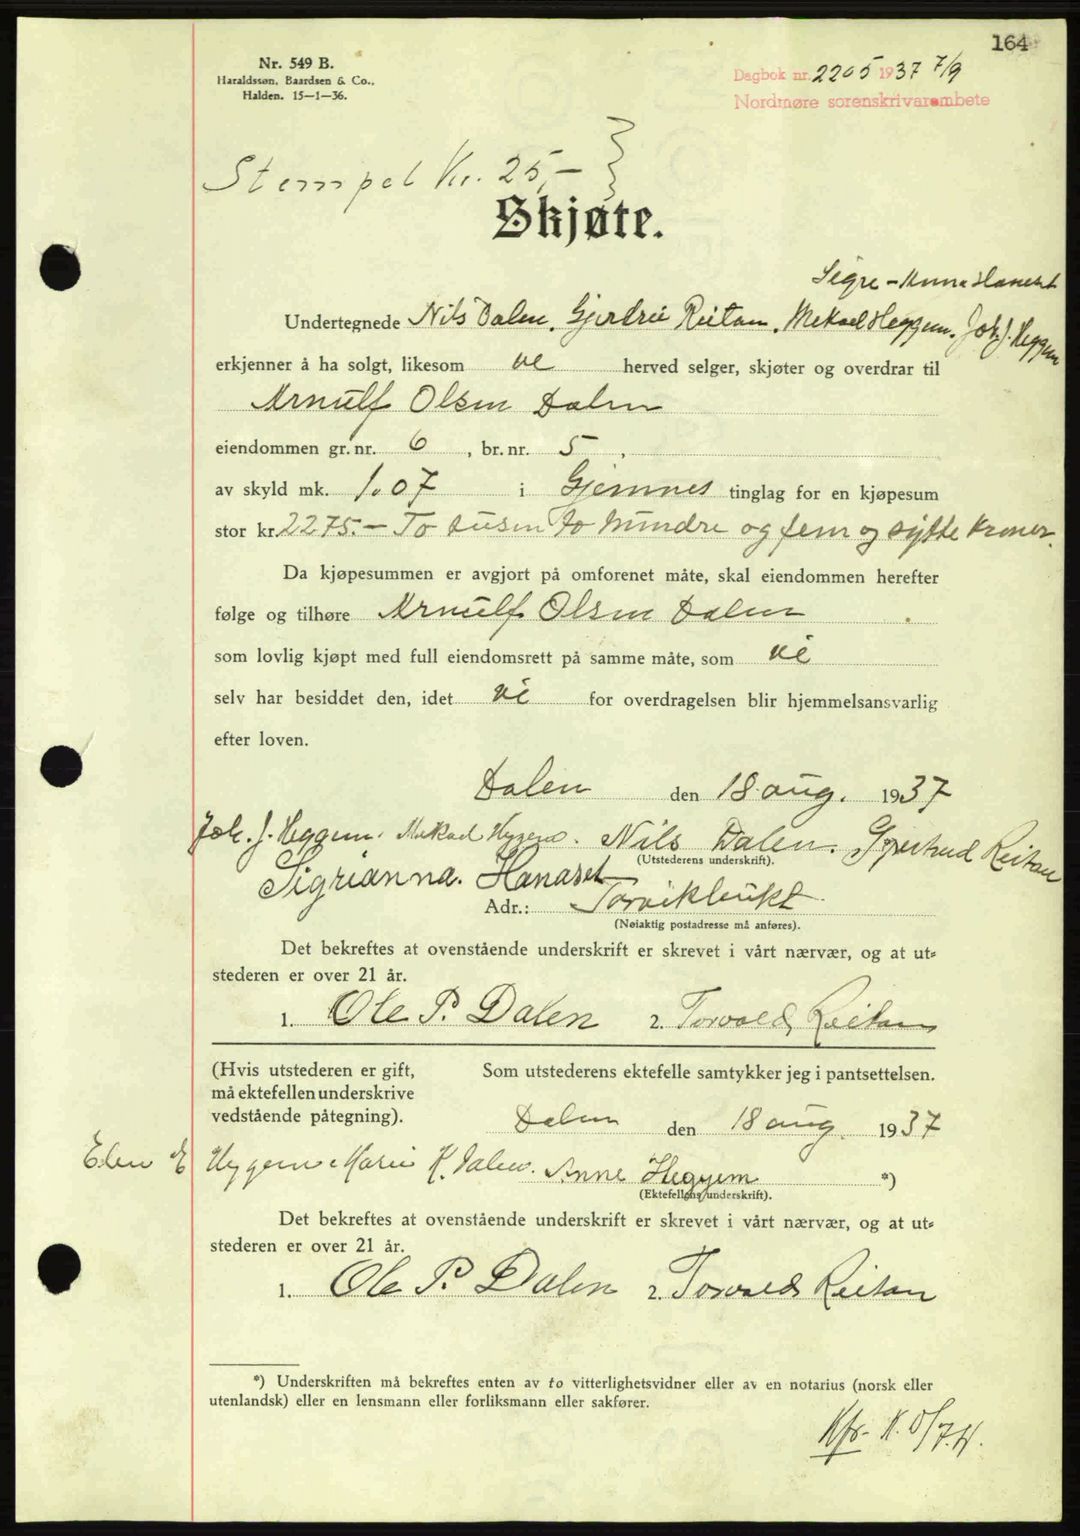 164
Nr. 549 B.
Haraldssøn, Baardsen & Co.,
Halden. 15—1—36.
Dagbok nr. 2205 1937 7/9
Nordmøre sorenskrivarembete
Stempel Kr. 25,- }
Skjøte.
Sigre - Anna Hanaset
Undertegnede Nils Dalen, Gjertrud Reitan, Mekael Heggem, Joh. J. Heggem
erkjenner å ha solgt, likesom vi herved selger, skjøter og overdrar til
Arnulf Olsen Dalen
eiendommen gr. nr. 6, br. nr. 5,
av skyld mk. 1.07 i Gjemnes tinglag for en kjøpesum
stor kr. 2275.- To tusen to hundre og fem og sytte kroner.
Da kjøpesummen er avgjort på omforenet måte, skal eiendommen herefter
følge og tilhøre Arnulf Olsen Dalen
som lovlig kjøpt med full eiendomsrett på samme måte, som vi
selv har besiddet den, idet vi for overdragelsen blir hjemmelsansvarlig
efter loven.
Dalen den 18 aug. 1937
Joh. J. Heggem. Mekael Heggem. Nils Dalen. Gjertrud Reitan
(Utstederens underskrift).
Sigrianna. Hanaset
Adr.: Torvikbukt
(Nøiaktig postadresse må anføres).
Det bekreftes at ovenstående underskrift er skrevet i vårt nærvær, og at ut-
stederen er over 21 år.
1. Ole P. Dalen 2. Torvald Reitan
(Hvis utstederen er gift, Som utstederens ektefelle samtykker jeg i pantsettelsen.
må ektefellen underskrive
vedstående påtegning).
Dalen den 18 aug. 1937
Elen E Heggem Marie K. Dalen. Anne Heggem *)
(Ektefellens underskrift).
Det bekreftes at ovenstående underskrift er skrevet i vårt nærvær, og at ut-
stederen er over 21 år.
1. Ole P. Dalen 2. Torvald Reitan
*) Underskriften må bekreftes enten av to vitterlighetsvidner eller av en notarius (norsk eller
utenlandsk) eller en lensmann eller forliksmann eller sakfører.